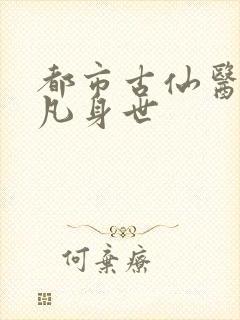 都市古仙醫
凡身世
何棄療